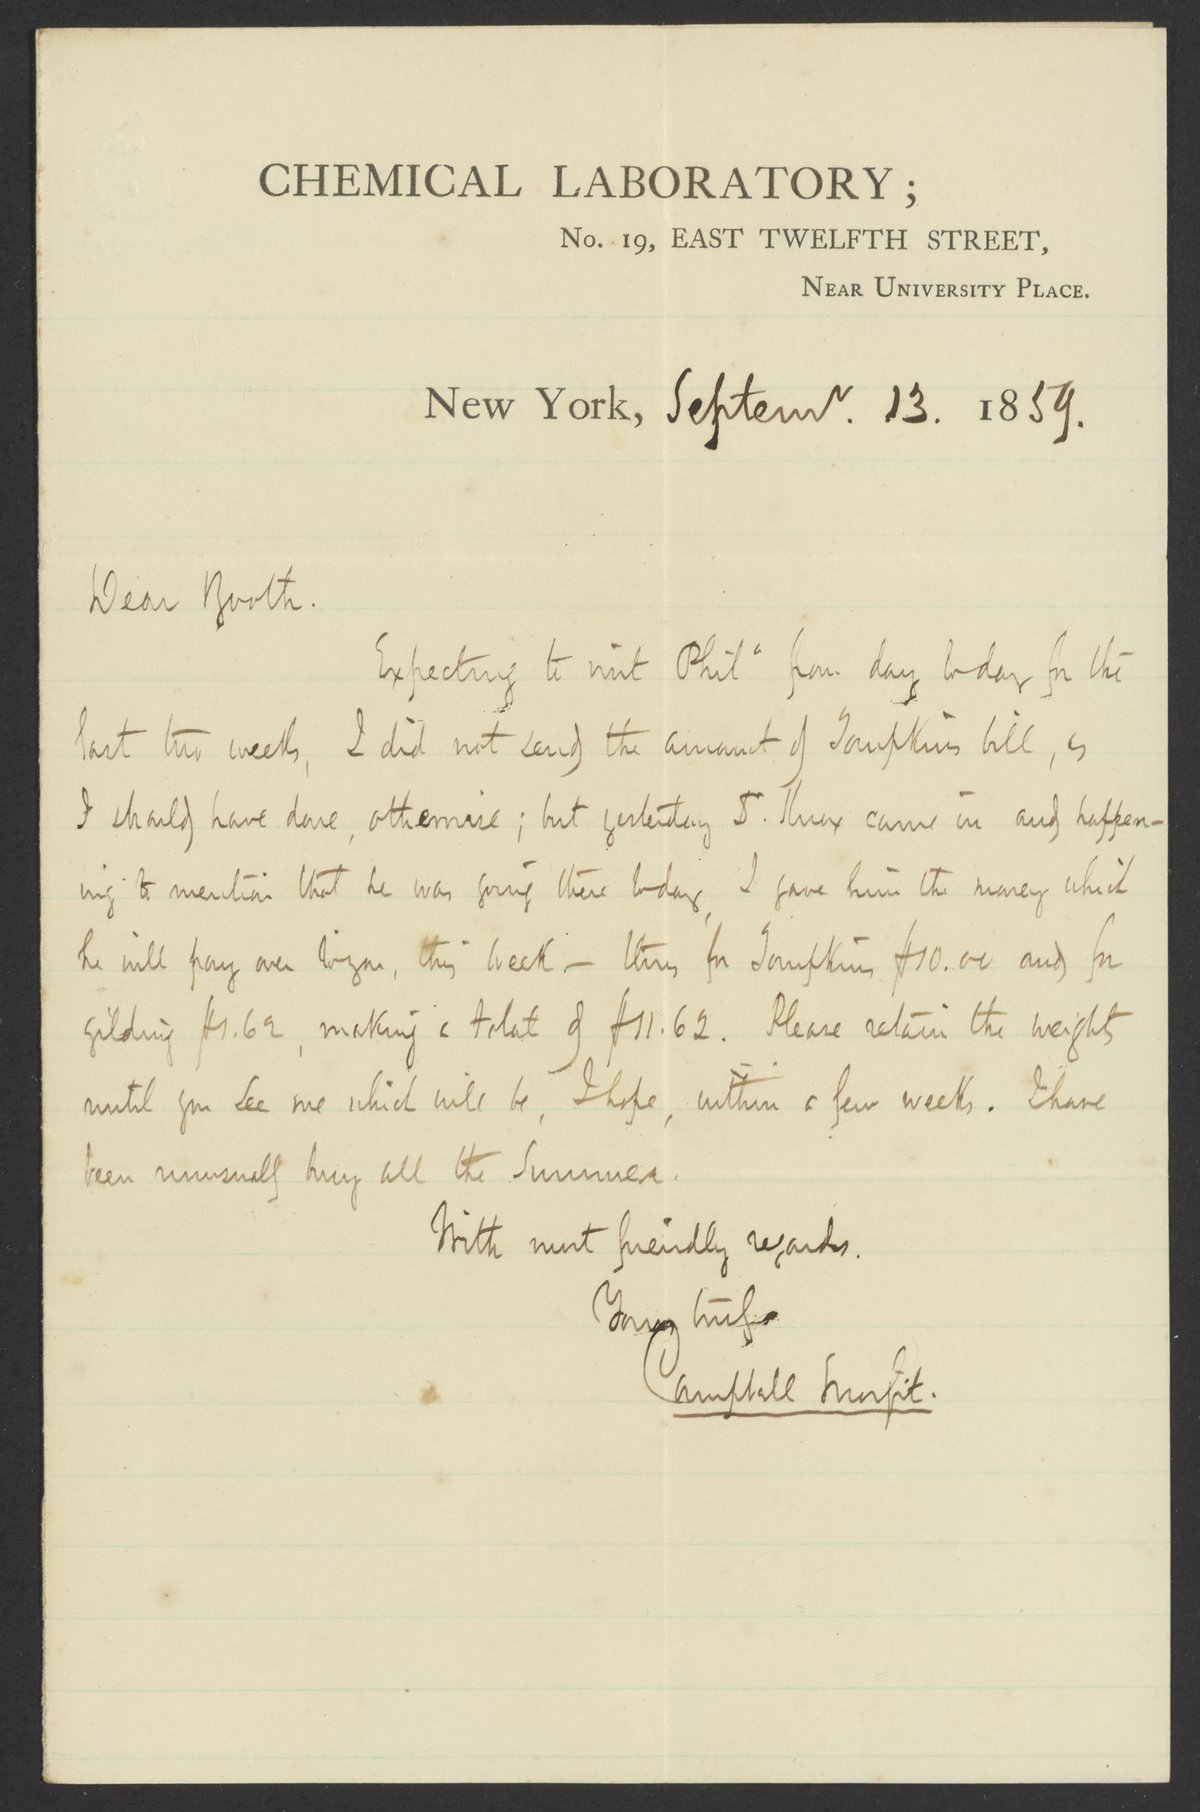 CHEMICAL LABORATORY;
No. 19, EAST TWELFTH STREET,
NEAR UNIVERSITY PLACE.
New York, Septemr. 13. 1859.
Dear Booth.
Expecting to visit Phila from day to day for the
last two weeks, I did not send the amount of Tompkins bill, as
I should have done, otherwise; but yesterday Dr. Knox came in and happen-
ing to mention that he was going there today, I gave him the money which
he will pay over to you, this week — thus for Tompkins $10.00 and for
gilding $1.62, making a total of $11.62. Please retain the weights
until you see me which will be, I hope, within a few weeks. I have
been unusually busy all the Summer.
With most friendly regards.
Yours truly
Campbell Morfit.